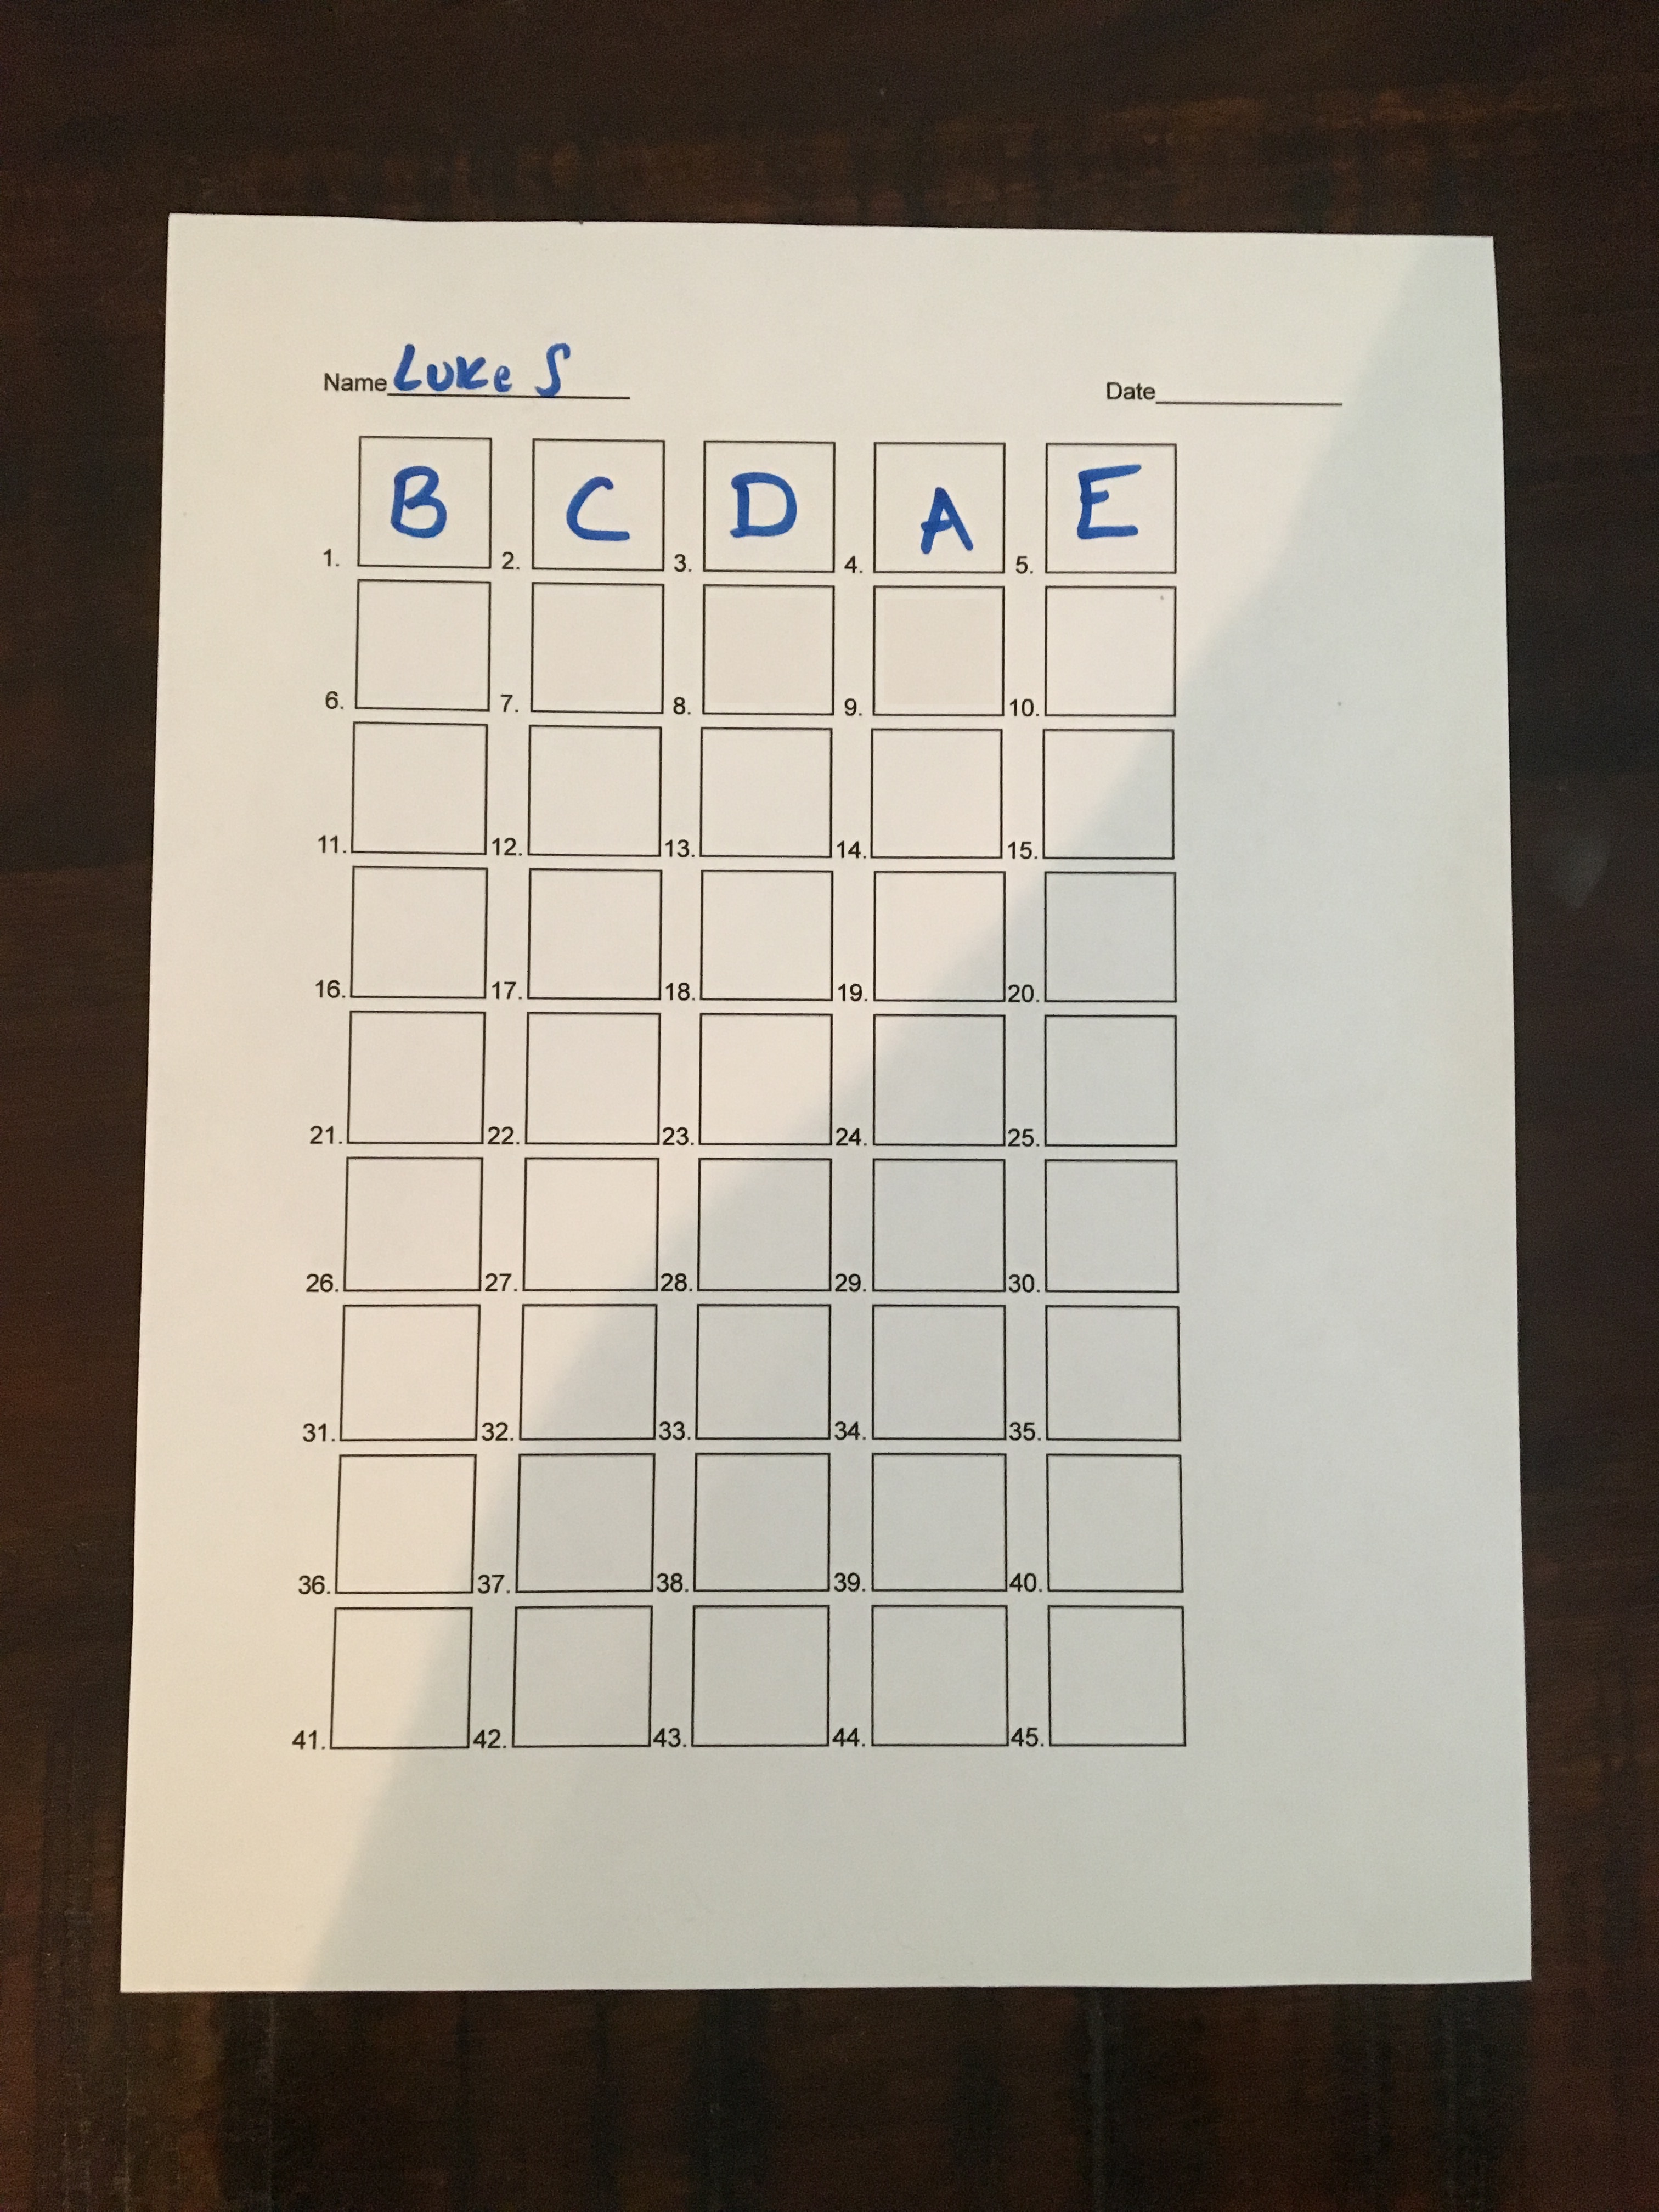 Name Luke S Date
B C D A E
1. 2. 3. 4. 5.
6. 7. 8. 9. 10.
11. 12. 13. 14. 15.
16. 17. 18. 19. 20.
21. 22. 23. 24. 25.
26. 27. 28. 29. 30.
31. 32. 33. 34. 35.
36. 37. 38. 39. 40.
41. 42. 43. 44. 45.